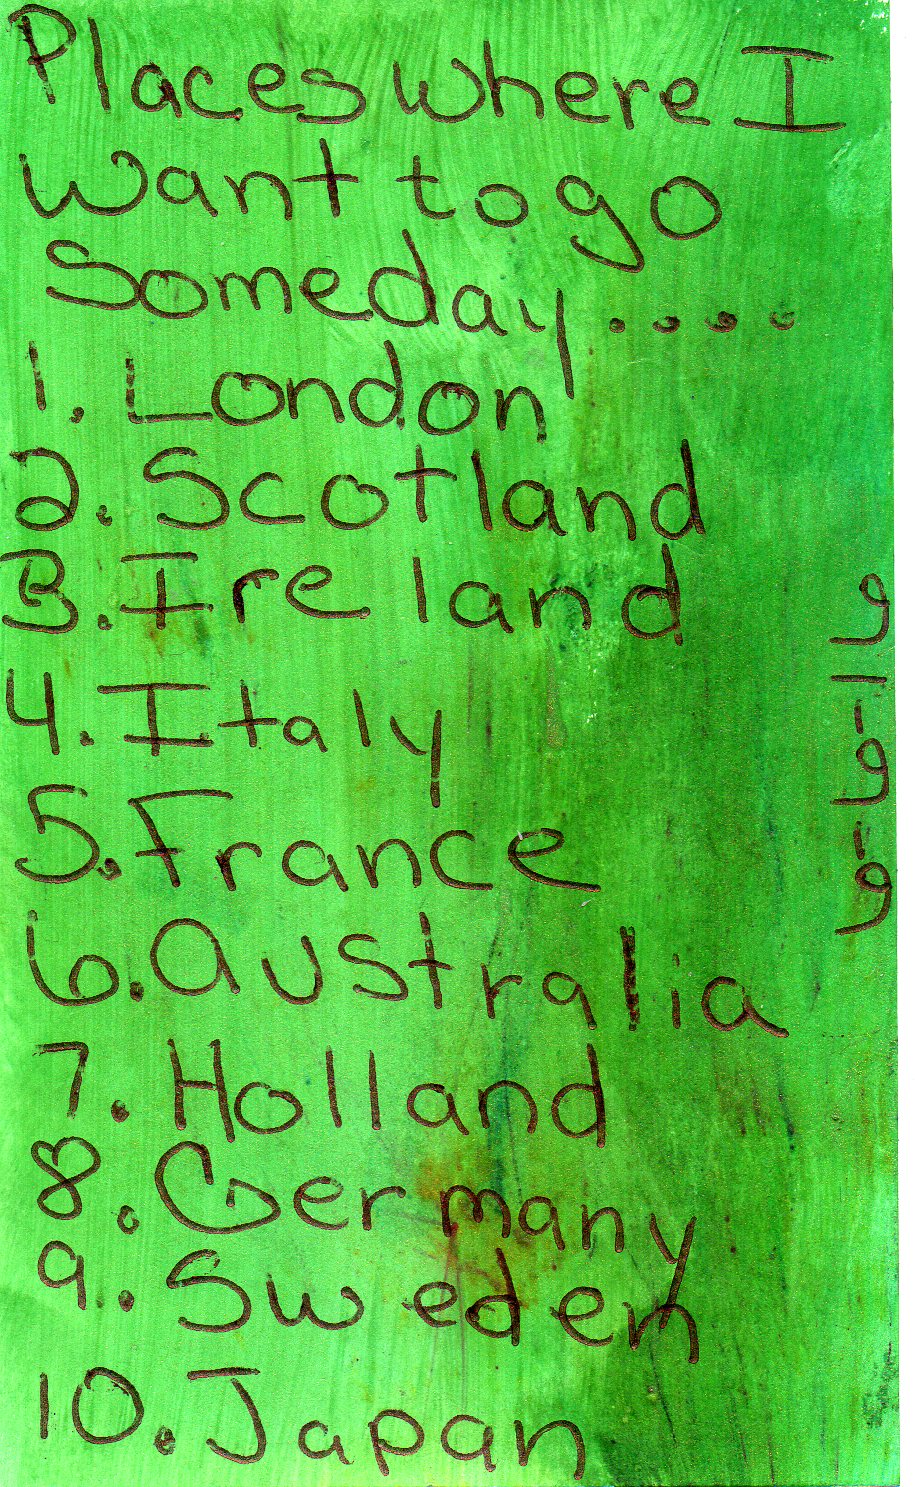 Places where I
Want to go
Someday....
1. London
2. Scotland
3. Ireland
4. Italy
5. France
6. Australia
7. Holland
8. Germany
9. Sweden
10. Japan
6-6-16